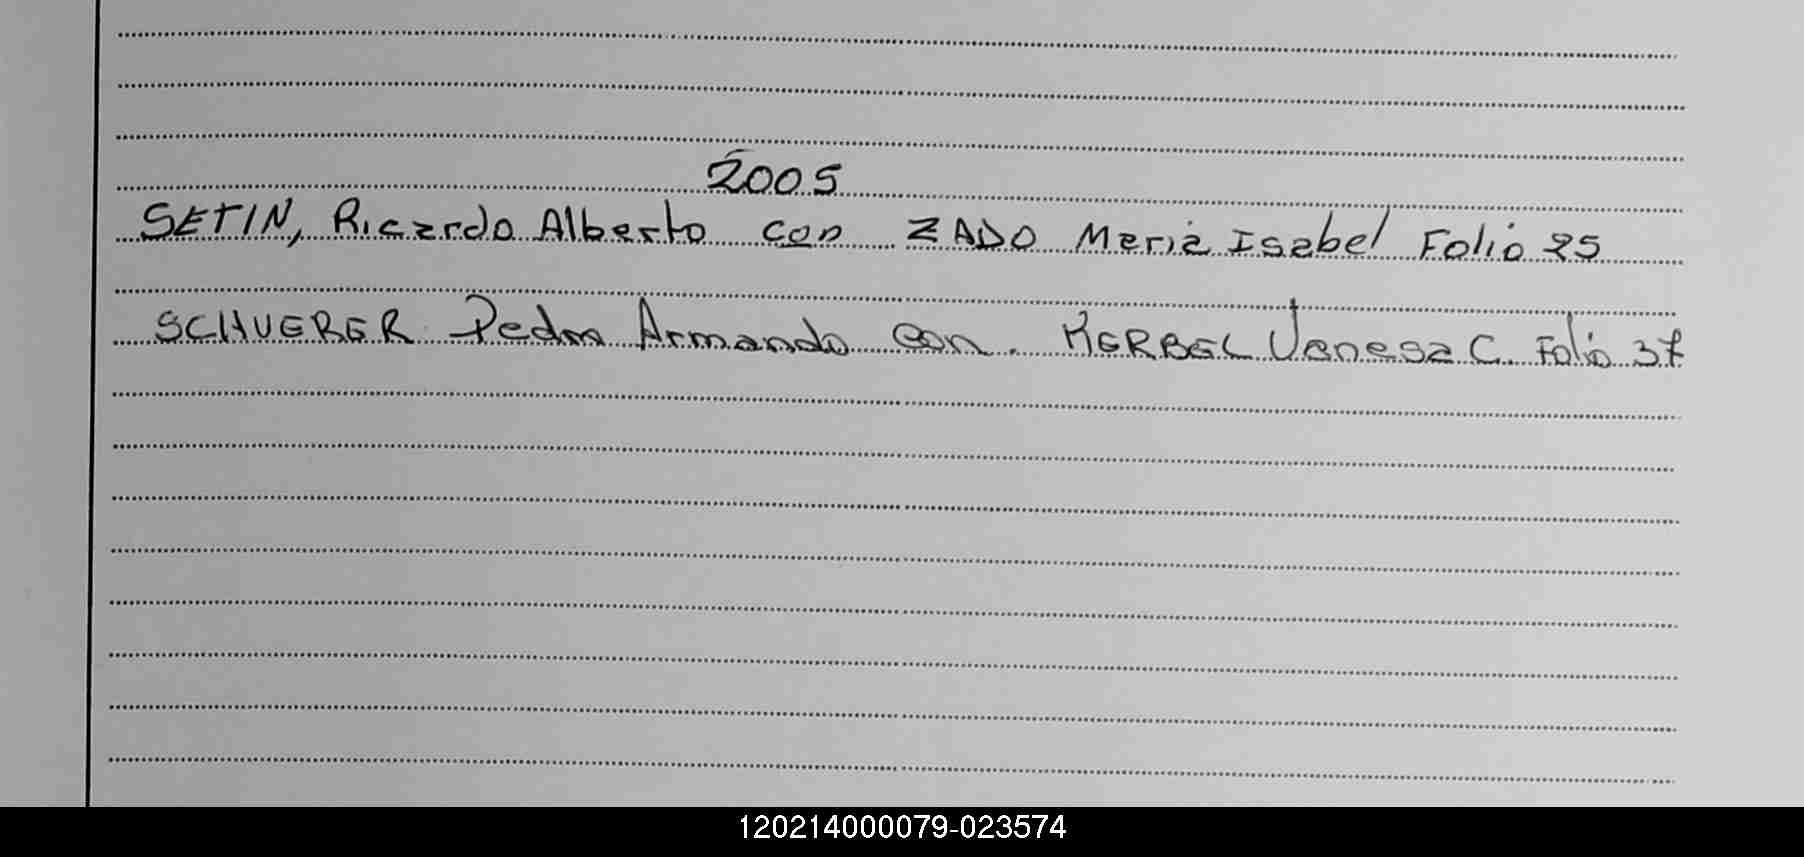 2005
SETIN, Ricardo Alberto con ZADO Maria Isabel Folio 25
SCHUERER Pedro Armando con. KERBEL Vanesa C. Folio 37
120214000079-023574